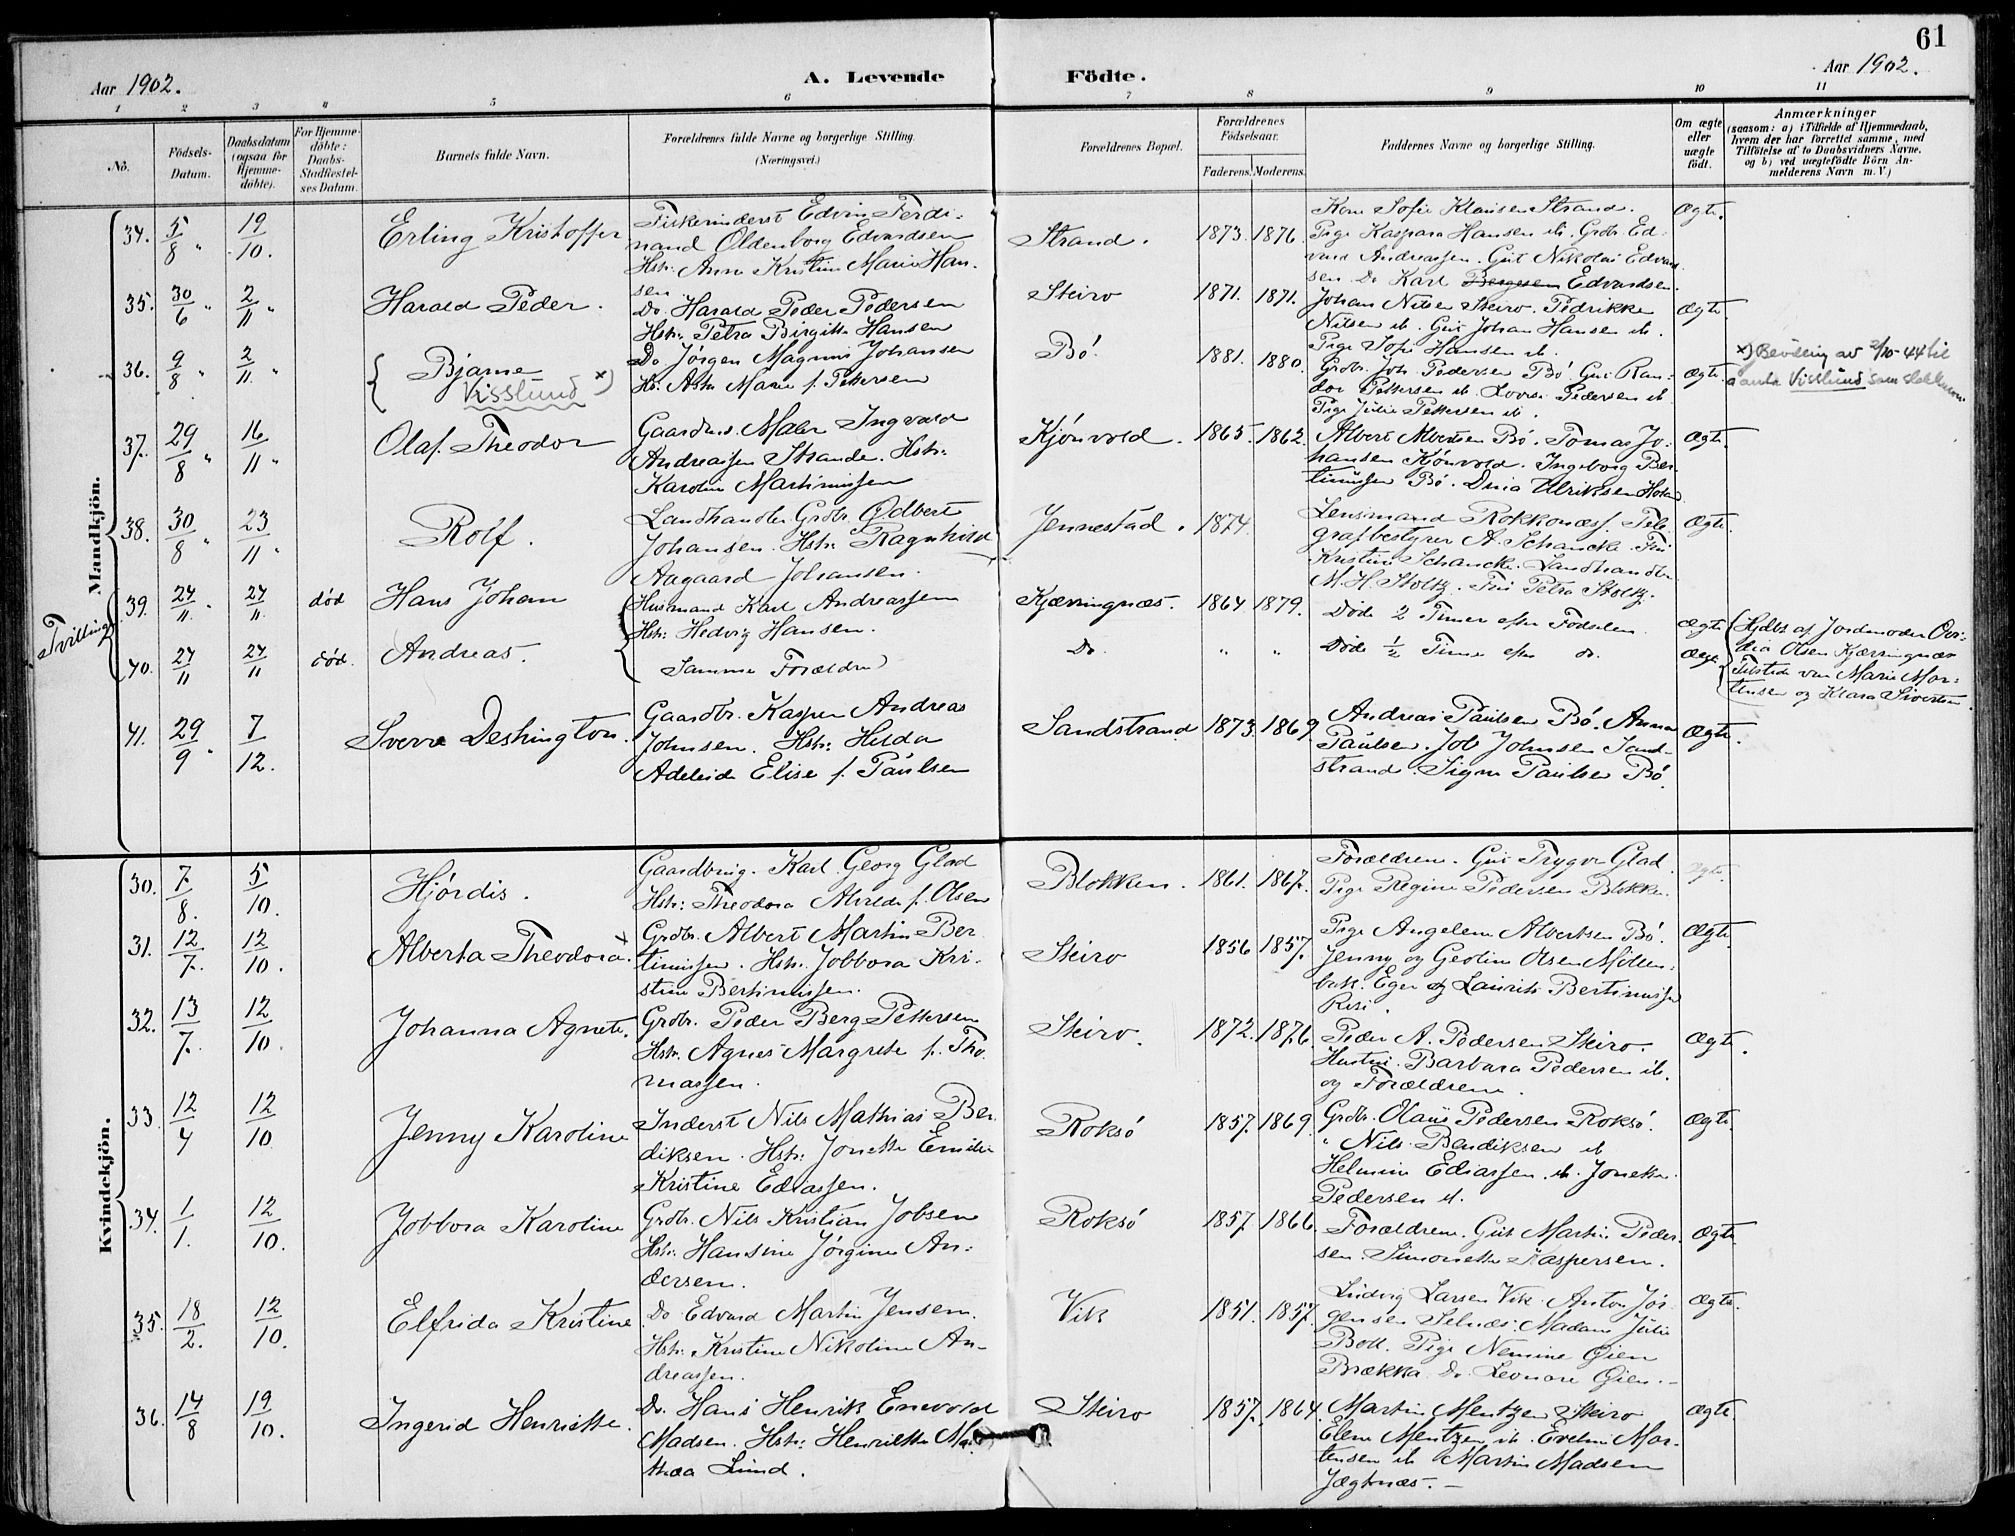 61
Aar 1902.
A. Levende Födte.
Aar 1902.
1 2 3 4 5 6 7 8 9 10 11
No.
Födsels-Datum.
Daabsdatum (ogsaa for Hjemmedöbte).
For Hjemmedöbte: Daabs-Stadfæstelses Datum.
Barnets fulde Navn.
Forældrenes fulde Navne og borgerlige Stilling.
(Næringsvei.)
Forældrenes Bopæl.
Forældrenes Födselsaar.
Faderens. Moderens.
Faddernes Navne og borgerlige Stilling.
Om ægte eller uægte födt.
Anmærkninger
(saasom: a) i Tilfælde af Hjemmedaab, hvem der har forrettet samme, med Tilföielse af to Daabsvidners Navne, og b) ved uægtefödte Börn Anmelderens Navn m. V.)
Mandkjön.
34. 5/8 " 19/10. Erling Kristoffer
Fiskerinderst Edvin Ferdi-
nand Oldenborg Edvardsen
Hstr. Anna Kristine Marie Han-
sen
Strand. 1873. 1876.
Kone Sofie Klausen Strand.
Pige Kaspara Hansen ib. Grdbr. Ed-
vard Andreassen. Gut Nikolai Edvard
sen Do Karl Edvardsen.
Ægte.
35. 30/6 " 2/11 " Harald Peder.
Do. Harald Peder Pedersen
Hstr. Petra Birgitte Hansen
Steiro 1871. 1871.
Johan Nilsen Steiro. Pedrikke
Nilsen ib. Gut Johan Hansen ib.
Pige Sofie Hansen ib.
Ægte
36. 9/8 " 2/11 " Bjarne
Visslund x)
Do Jörgen Magnus Johansen
Hst. Marie f. Pettersen
Bö. 1881. 1880.
Grdbr. Joh. Pedersen Bö Gut Ran-
dor Pettersen ib. Pedersen ib
Pige Julie Pettersen ib.
Ægte
x) Bevilling av 2/10-44 til
å anta Visslund som slektsnavn
37. 29/8 " 16/11 " Olaf Theodor
Maler Ingvald
Andreassen Strande. Hstr.
Karoline Martinussen
Kjönvold. 1865. 1862.
Albert Albertsen Bö. Tomas Jo-
hansen Kjönvold. Ingeborg Ber-
tinussen Bö. Ulriksen
Ægte.
38. 30/8 " 23/11 " Rolf.
Landhandler Grdbr. Odbert
Johansen. Hstr. Ragnhild
Aagaard Johansen.
Jennestad. 1874.
Lensmand Rokkonæs. Tele-
grafbestyrer A. Schancke. Fru
Kristine Schancke. Landhandler
M. H. Stoltz. Fru Petra Stoltz.
Ægte.
Tvillinger
39. 24/11. " 24/11. död Hans Johan
Husmand Karl Andreassen
Hstr. Hedvig Hansen.
Kjærringnæs. 1864. 1879.
Döde 2 Timer efter Födselen.
Ægte
40. 24/11 24/11 död. Andreas.
Samme Forældre
Do. " " Döde 1/2 Time efter do.
Ægte
Hjdbt af Jordemoder
Olsen Kjærringnæs
Tilstede var Marie Mor-
tensen og Klara Sivertsen.
41. 29/9 " 7/12. Sverre Deshington.
Gaardbr. Kasper Andreas
Johnsen. Hstr. Hilda
Adeleide Elise f. Paulsen
Sandstrand 1873. 1869
Andreas Paulsen Bö. Anna
Paulsen. Job Johnsen Sand-
strand. Signe Paulsen Bö.
Ægte.
Kvindekjön.
30. 7/8. 5/10. Hjördis.
Karl Georg Glad
Hstr: Theodora Alvilde f. Olsen
Blokken. 1861. 1867.
Forældrene. Gut Trygve Glad.
Pige Regine Pedersen Blokken.
Ægte.
31. 12/7. 12/10. Alberta Theodora.
Grdbr. Albert Martin Ber-
tinussen. Hstr. Jobbora Kri-
stine Bertinussen.
Steiro 1856 1857.
Pige Angelene Albertsen Bö.
Jenny og Gedine Olsen Möllen-
bak. Eger og Laurits Bertinussen
Risi.
Ægte
32. 13/7. 12/10. Johanna Agnete.
Grdbr. Peder Berg Pettersen
Hstr. Agnes Margrete f. Tho-
massen.
Steiro. 1872. 1876.
Peder A. Pedersen Steiro.
Hustru Barbara Pedersen ib.
og Forældrene.
Ægte.
33. 12/4 12/10 Jenny Karoline
Inderst Nils Mathias Ben-
diksen. Hstr. Jonette Emilie
Kristine Ediassen.
Roksö 1857. 1869.
Grdbr. Olaus Pedersen Roksö.
" Nils Bendiksen ib
Helmine Ediassen. ib. Jonette
Pedersen ib.
Ægte.
34. 1/1. 12/10. Jobbora Karoline
Grdbr. Nils Kristian Jobsen
Hstr. Hansine Jörgine An-
dersen.
Roksö 1857 1866
Forældrene. Gut Martin Peder-
sen. Simonette Kaspersen.
Ægte.
35. 18/2. 12/10. Elfrida Kristine
Do. Edvard Martin Jensen.
Hstr. Kristine Nikoline An-
dreassen.
Vik 1851. 1857.
Ludvig Larsen Vik. Anton Jör-
gensen Selnæs. Madam Julie
Boll. Pige Nemine Öien
Brækka Do. Leonore Öien.
Ægte.
36. 14/8 19/10. Ingerid Henriette.
Do. Hans Henrik Enevold
Madsen. Hstr. Henriette Ma-
thea Lund.
Steiro 1857. 1864.
Martin Mentzen Steiro
Elene Mentzen ib. Eveline Mor-
tensen ib Martin Madsen
Jægtnæs.
Ægte.